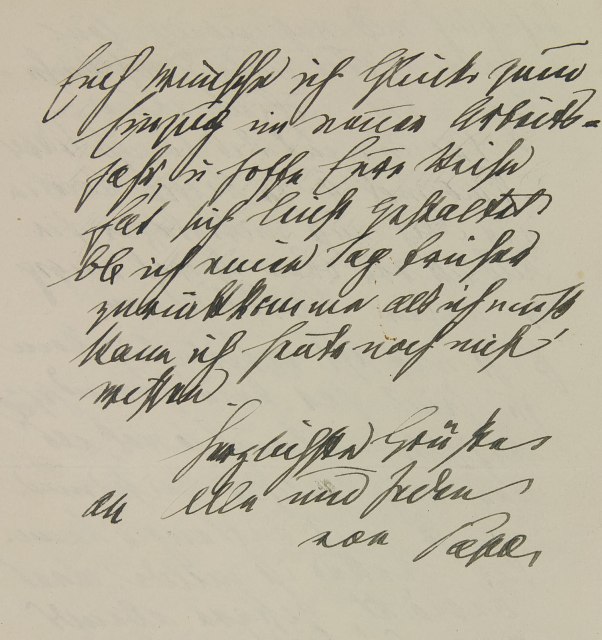 Euch wünsche ich Glück zum
Einzug im neuen Arbeits-
jahr, u hoffe Eure Reise
hat sich leicht gestaltet
Ob ich einen Tag früher
zurückkomme als ich muß
kann ich heute noch nicht
wissen
Herzlichste Grüße
an alle und Jeden
von Papa.